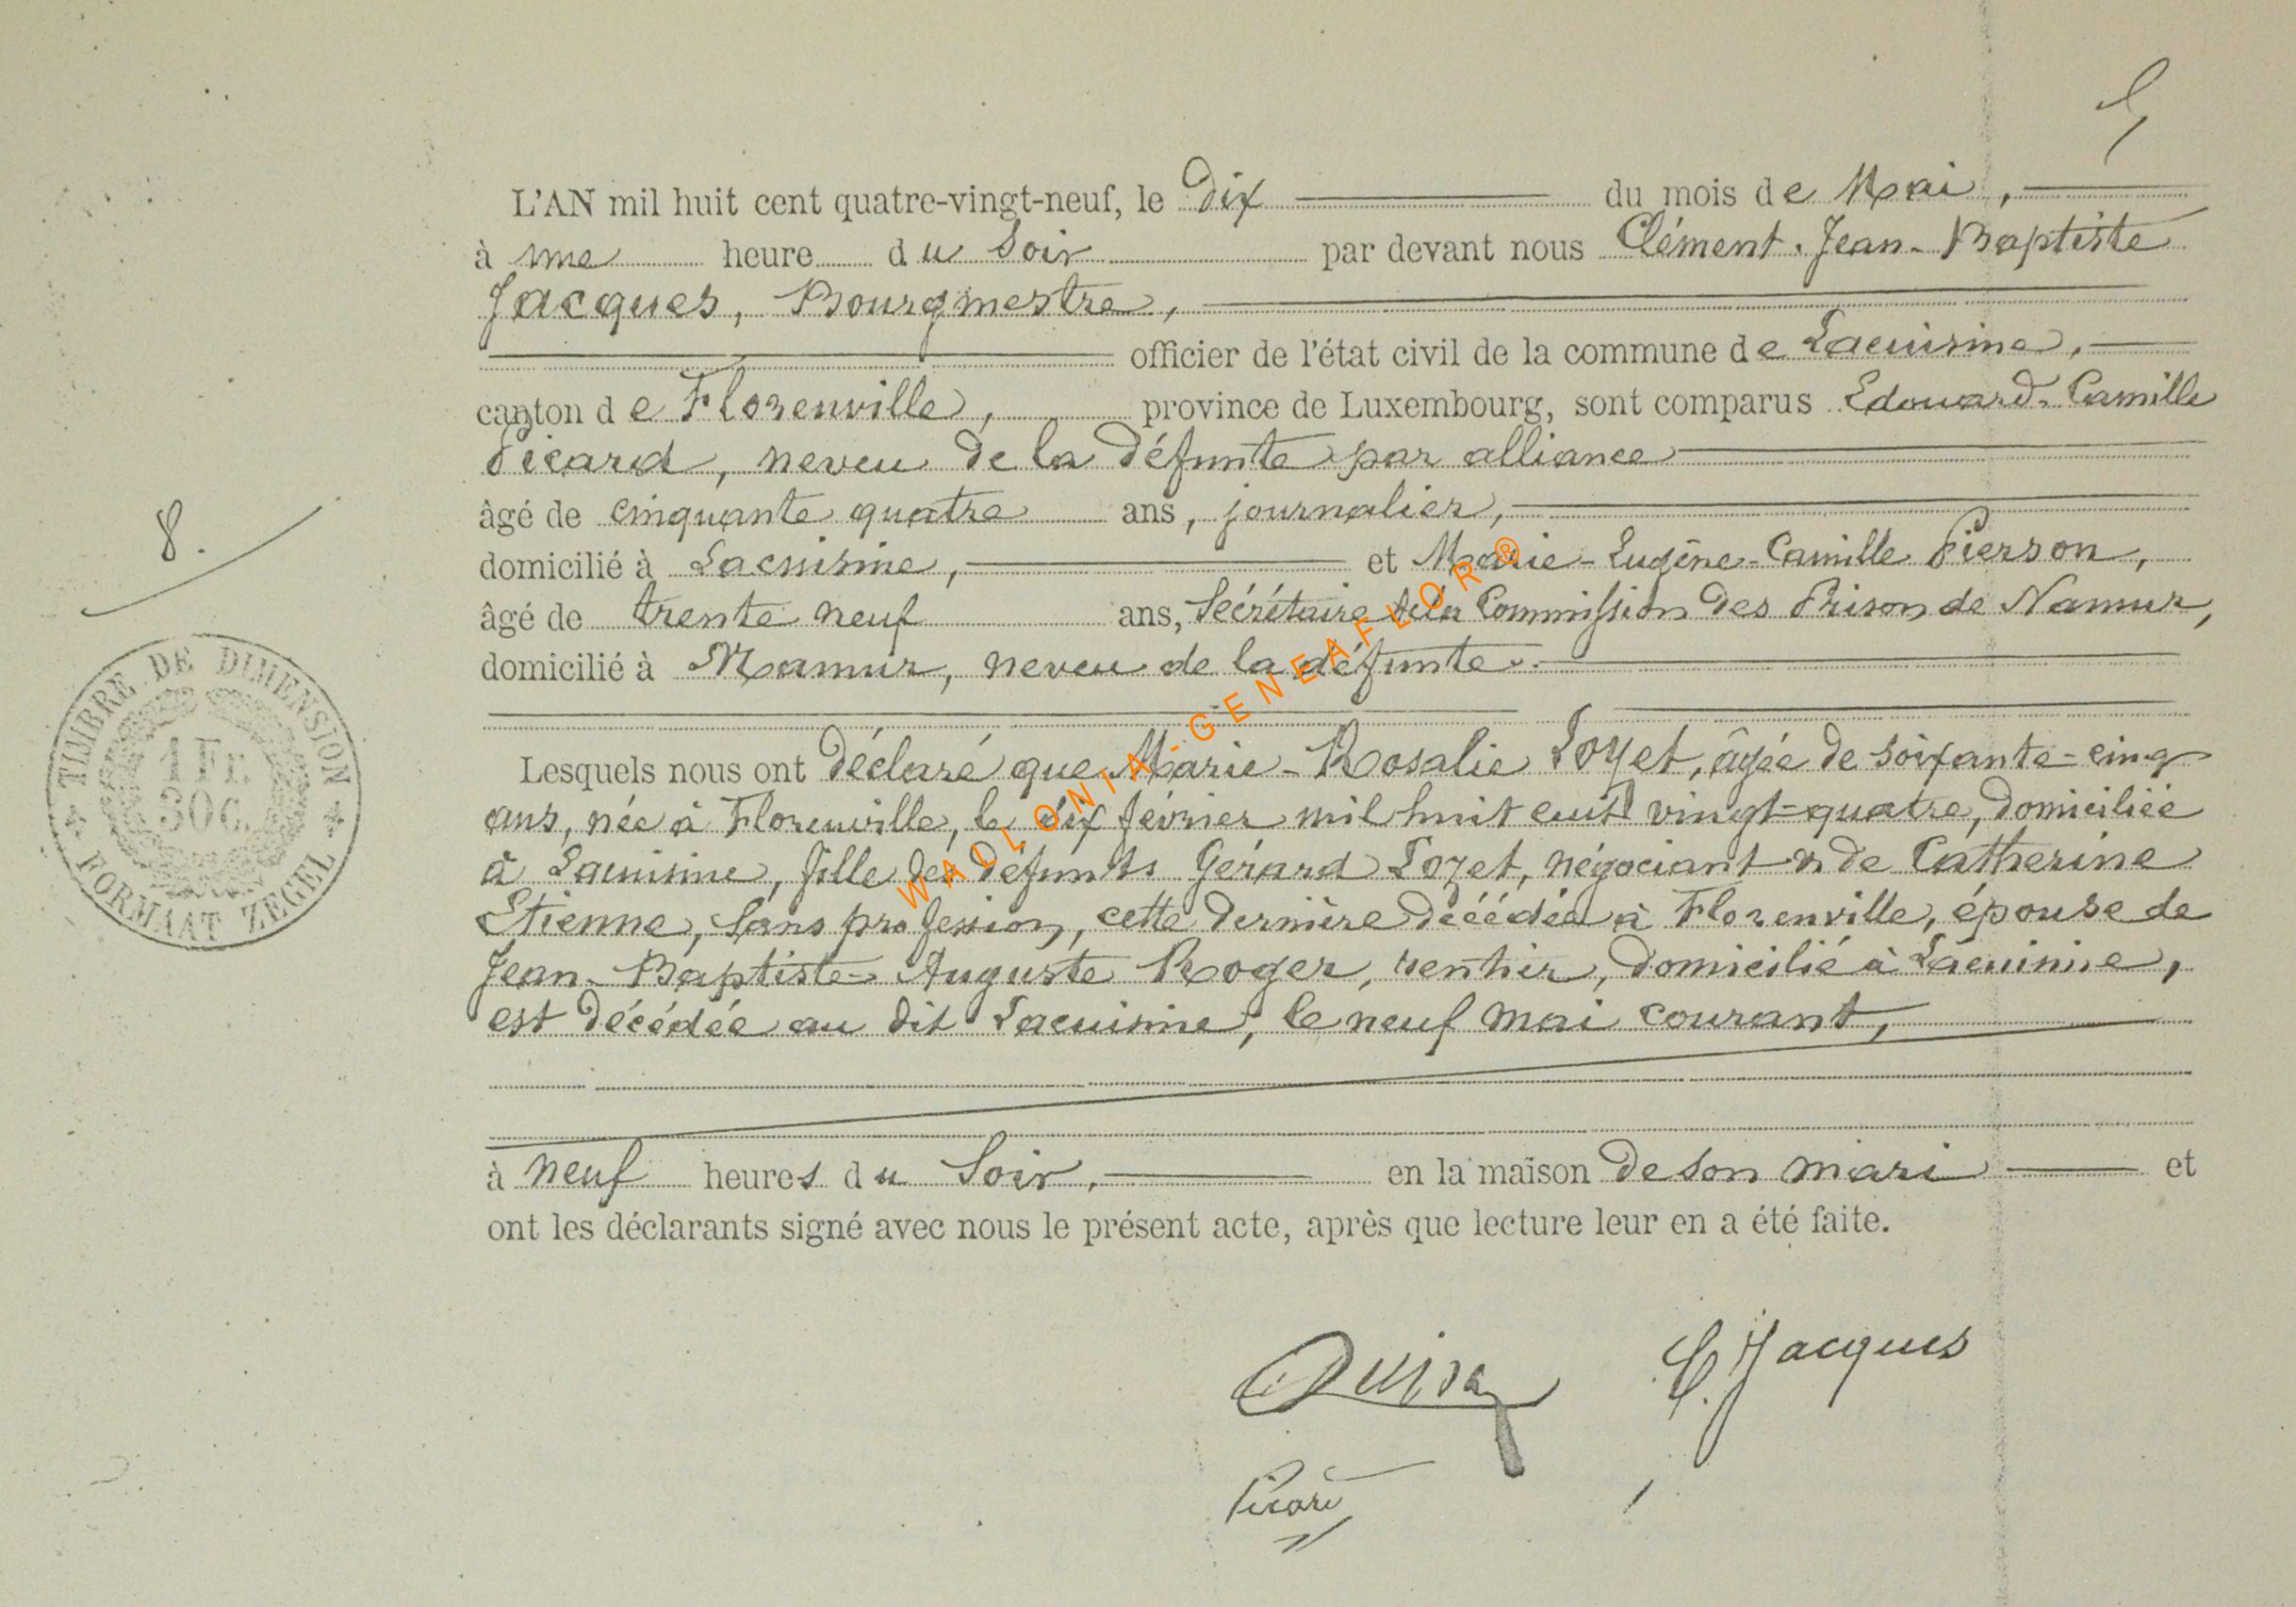 L'AN mil huit cent quatre-vingt-neuf, le dix du mois de Mai,
à une heure du Soir par devant nous Clément. Jean-Baptiste
Jacques, Bourgmestre,
officier de l'état civil de la commune de Lacuisine,
canton de Florenville, province de Luxembourg, sont comparus Edouard-Camille
Picard, neveu de la défunte par alliance
âgé de cinquante quatre ans, journalier,
8.
domicilié à Lacuisine, et Marie-Eugène-Camille Pierson,
âgé de trente neuf ans, Sécrétaire de la Commission des Prison de Namur,
domicilié à Namur, neveu de la défunte.
TIMBRE DE DIMENSION
1 Fr.
30 C.
FORMAAT ZEGEL
Lesquels nous ont déclaré que Marie-Rosalie Loyet, âgée de soixante-cinq
ans, née à Florenville, le dix février mil huit cent vingt-quatre, domiciliée
à Lacuisine, fille des défunts Gérard Loyet, négociant & de Catherine
Etienne, sans profession, cette dernière décédée à Florenville, épouse de
Jean-Baptiste-Auguste Roger, rentier, domicilié à Lacuisine,
est décédée au dit Lacuisine, le neuf mai courant,
à neuf heures du Soir, en la maison de son mari et
ont les déclarants signé avec nous le présent acte, après que lecture leur en a été faite.
C. Jacques
Picard
WALLONIA-GENEAFLOR®